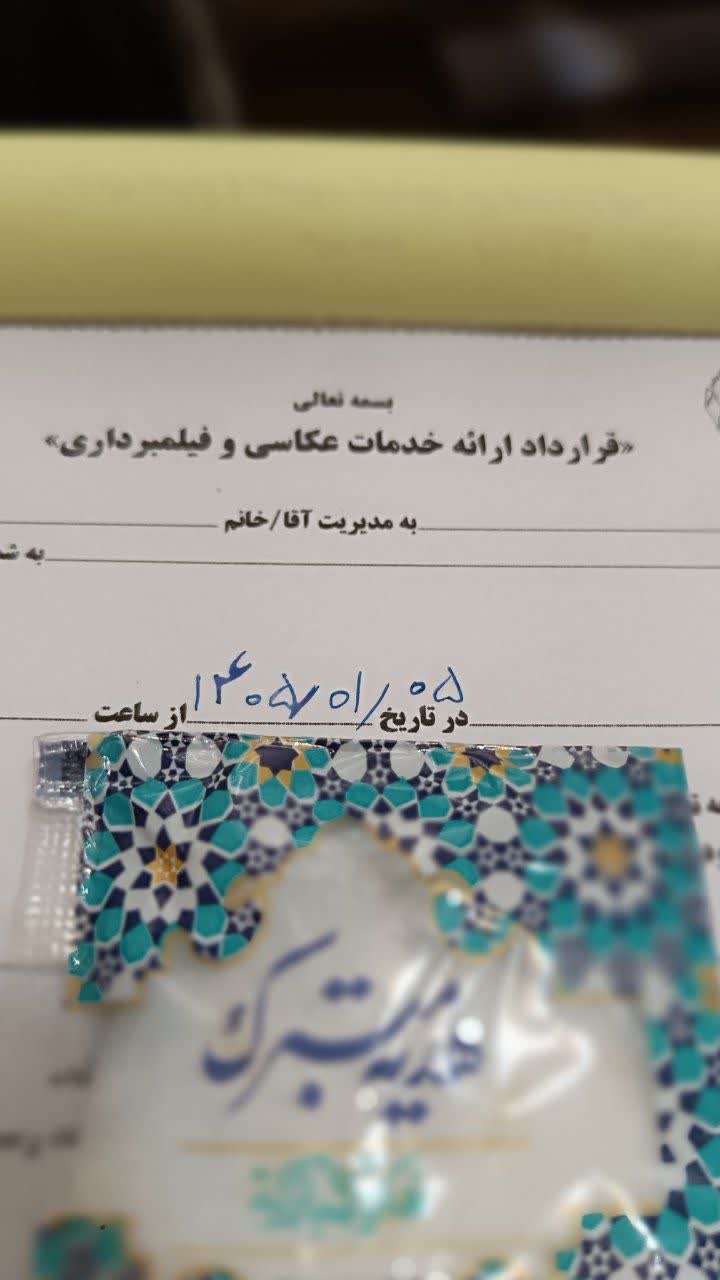 بسمه تعالی
«قرارداد ارائه خدمات عکاسی و فیلمبرداری»
به مدیریت آقا/خانم
در تاریخ ۱۴۰۵/۰۱/۰۵ از ساعت
هدیه متبرک